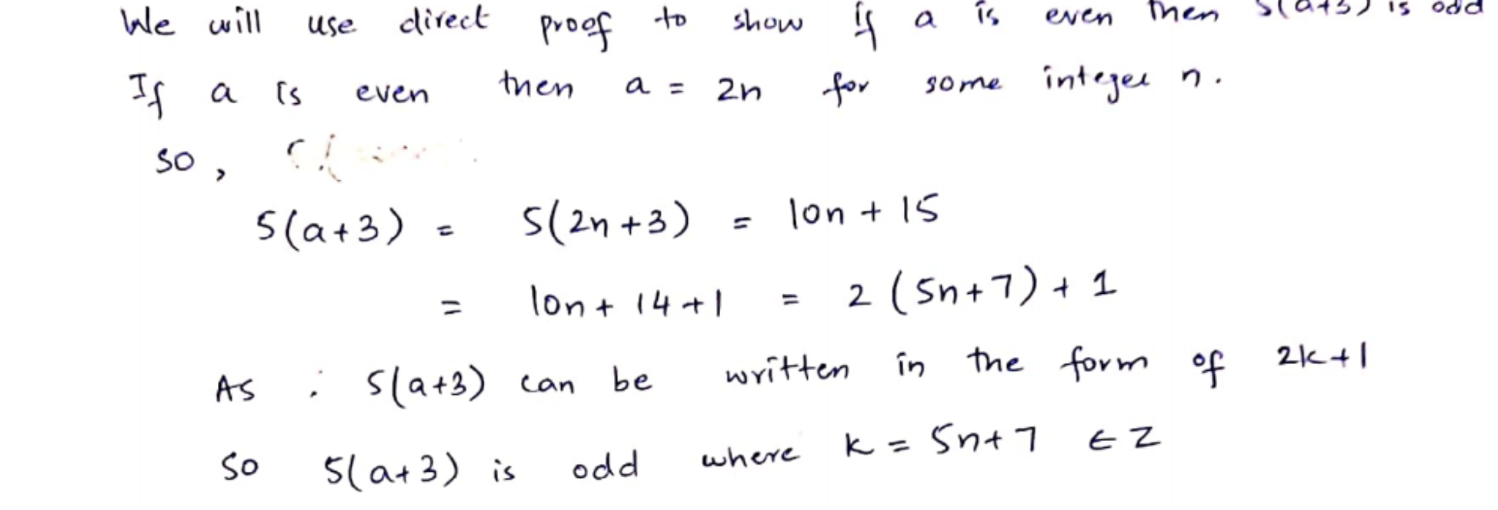 We will use direct proof to show if a is even then 5(a+3) is odd
If a is even then a = 2n for some integer n.
so,
5(a+3) = 5(2n+3) = 10n + 15
= 10n + 14 + 1 = 2 (5n+7) + 1
As 5(a+3) can be written in the form of 2k+1
So 5(a+3) is odd where k = 5n+7 ∈ Z